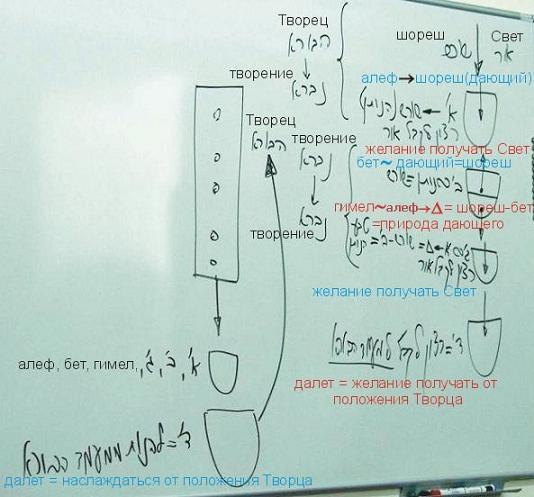 Творец
הבורא
творение
נברא
шореш
שורש
Свет
אור
алеф→шореш(дающий)
א' ← שורש (הנותן)
רצון לקבל אור
желание получать Свет
Творец
הבורא
творение
נברא
творение
נברא
бет~ дающий=шореш
ב' ~ הנותן = שורש
гимел~алеф→Δ= шореш-бет
=природа дающего
טבע
רצון לקבל אור
желание получать Свет
ד' = רצון לקבל
далет = желание получать от
положения Творца
алеф, бет, гимел, א', ב', ג',
ד' = להנות ממעמד הבורא
далет = наслаждаться от положения Творца